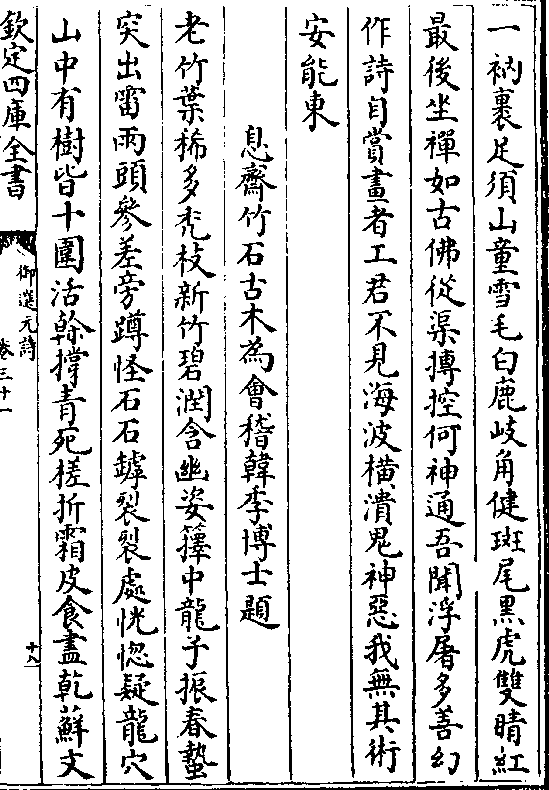 一衲裹足須山童雪毛白鹿岐角健斑尾黑虎雙睛紅
最後坐禪如古佛從渠摶控何神通吾聞浮屠多善幻
作詩自賞畫者工君不見海波橫潰鬼神惡我無其術
安能東
息齋竹石古木為會稽韓季博士題
老竹葉稀多禿枝新竹碧潤含幽姿籜中龍子振春蟄
突出雷雨頭參差旁蹲怪石石罅裂裂處恍惚疑龍穴
山中有樹皆十圍活榦撐青死槎折霜皮食盡乾蘚文
欽定四庫全書
御選元詩
卷三十一
十八